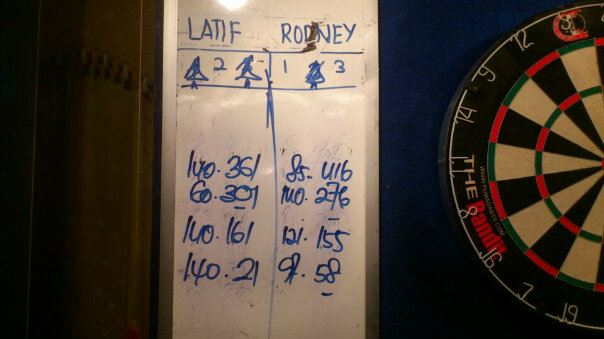 LATIF RODNEY
2 1 3
140.361 85.416
60.301 140.276
140.161 121.155
140.21 97.58
12
9
14
11
8
16
7
19
WWW.PUMADARTS.COM
THE Bandit